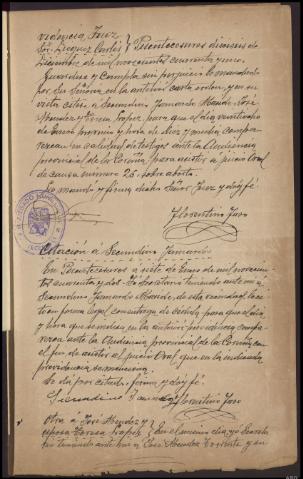 videncia Juez
Sr. Luques Cortés } Puentecesures dieciseis de
Diciembre de mil novecientos cuarenta y uno.
Guardese y cumpla sin perjuicio lo mandado
por Su Señoria en la anterior carta orden, y en su
vista citese á Secundino Jamardo Maside, José
Mendez y Teresa Lopez para que el día veintisiete
de Enero proximo y hora de diez y media compa-
rezcan en calidad de testigos ante la Audiencia
provincial de la Coruña, para asistir a juicio Oral
de causa numero 26, sobre aborto.
Lo mandó y firma dicho Señor Juez y doy fé.
Florentino Jaso
Citación á Secundino Jamardo
En Puentecesures á siete de Enero de mil novecien-
tos cuarenta y dos. Yo Secretario teniendo ante mi a
Secundino Jamardo Maside, de esta vecindad, le ci-
té en forma legal con entrega de cédula para que el día
y hora que se indican en la anterior providencia compa-
rezca ante la Audiencia provincial de la Coruña, con
el fin de asistir al juicio Oral que en la indicada
providencia se menciona.
Se dá por citado, firma y doy fé.
Secundino Jamardo Florentino Jaso
Otra á José Mendez y
esposa Teresa Lopez } En el mismo día, yo Secreta-
rio teniendo ante mi a José Mendez y en